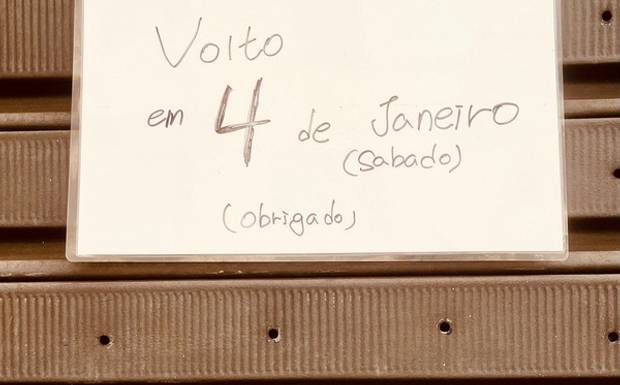 Volto
em 4 de Janeiro
(Sabado)
(obrigado)